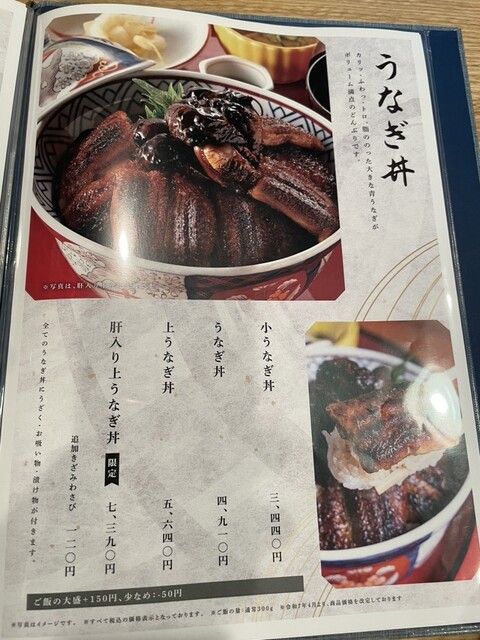 うなぎ丼
カリッ・ふわっ・トロ、脂ののった大きな青うなぎが
ボリューム満点のどんぶりです。
※写真は、肝入
小うなぎ丼 三、四四〇円
うなぎ丼 四、九一〇円
上うなぎ丼 五、六四〇円
肝入り上うなぎ丼 限定 七、三九〇円
追加きざみわさび 一二〇円
全てのうなぎ丼にうざく・お吸い物・漬け物が付きます。
ご飯の大盛+150円、少なめ:-50円
※写真は4イメージです。 ※すべて税込の価格表示となっております。 ※ご飯の量:通常300g ※令和7年4月より、商品価格を改定しております